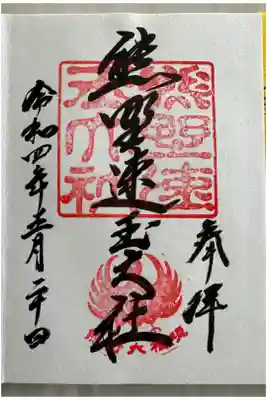 奉拝
熊野速玉大社
熊野速
玉大社
令和四年五月二十日